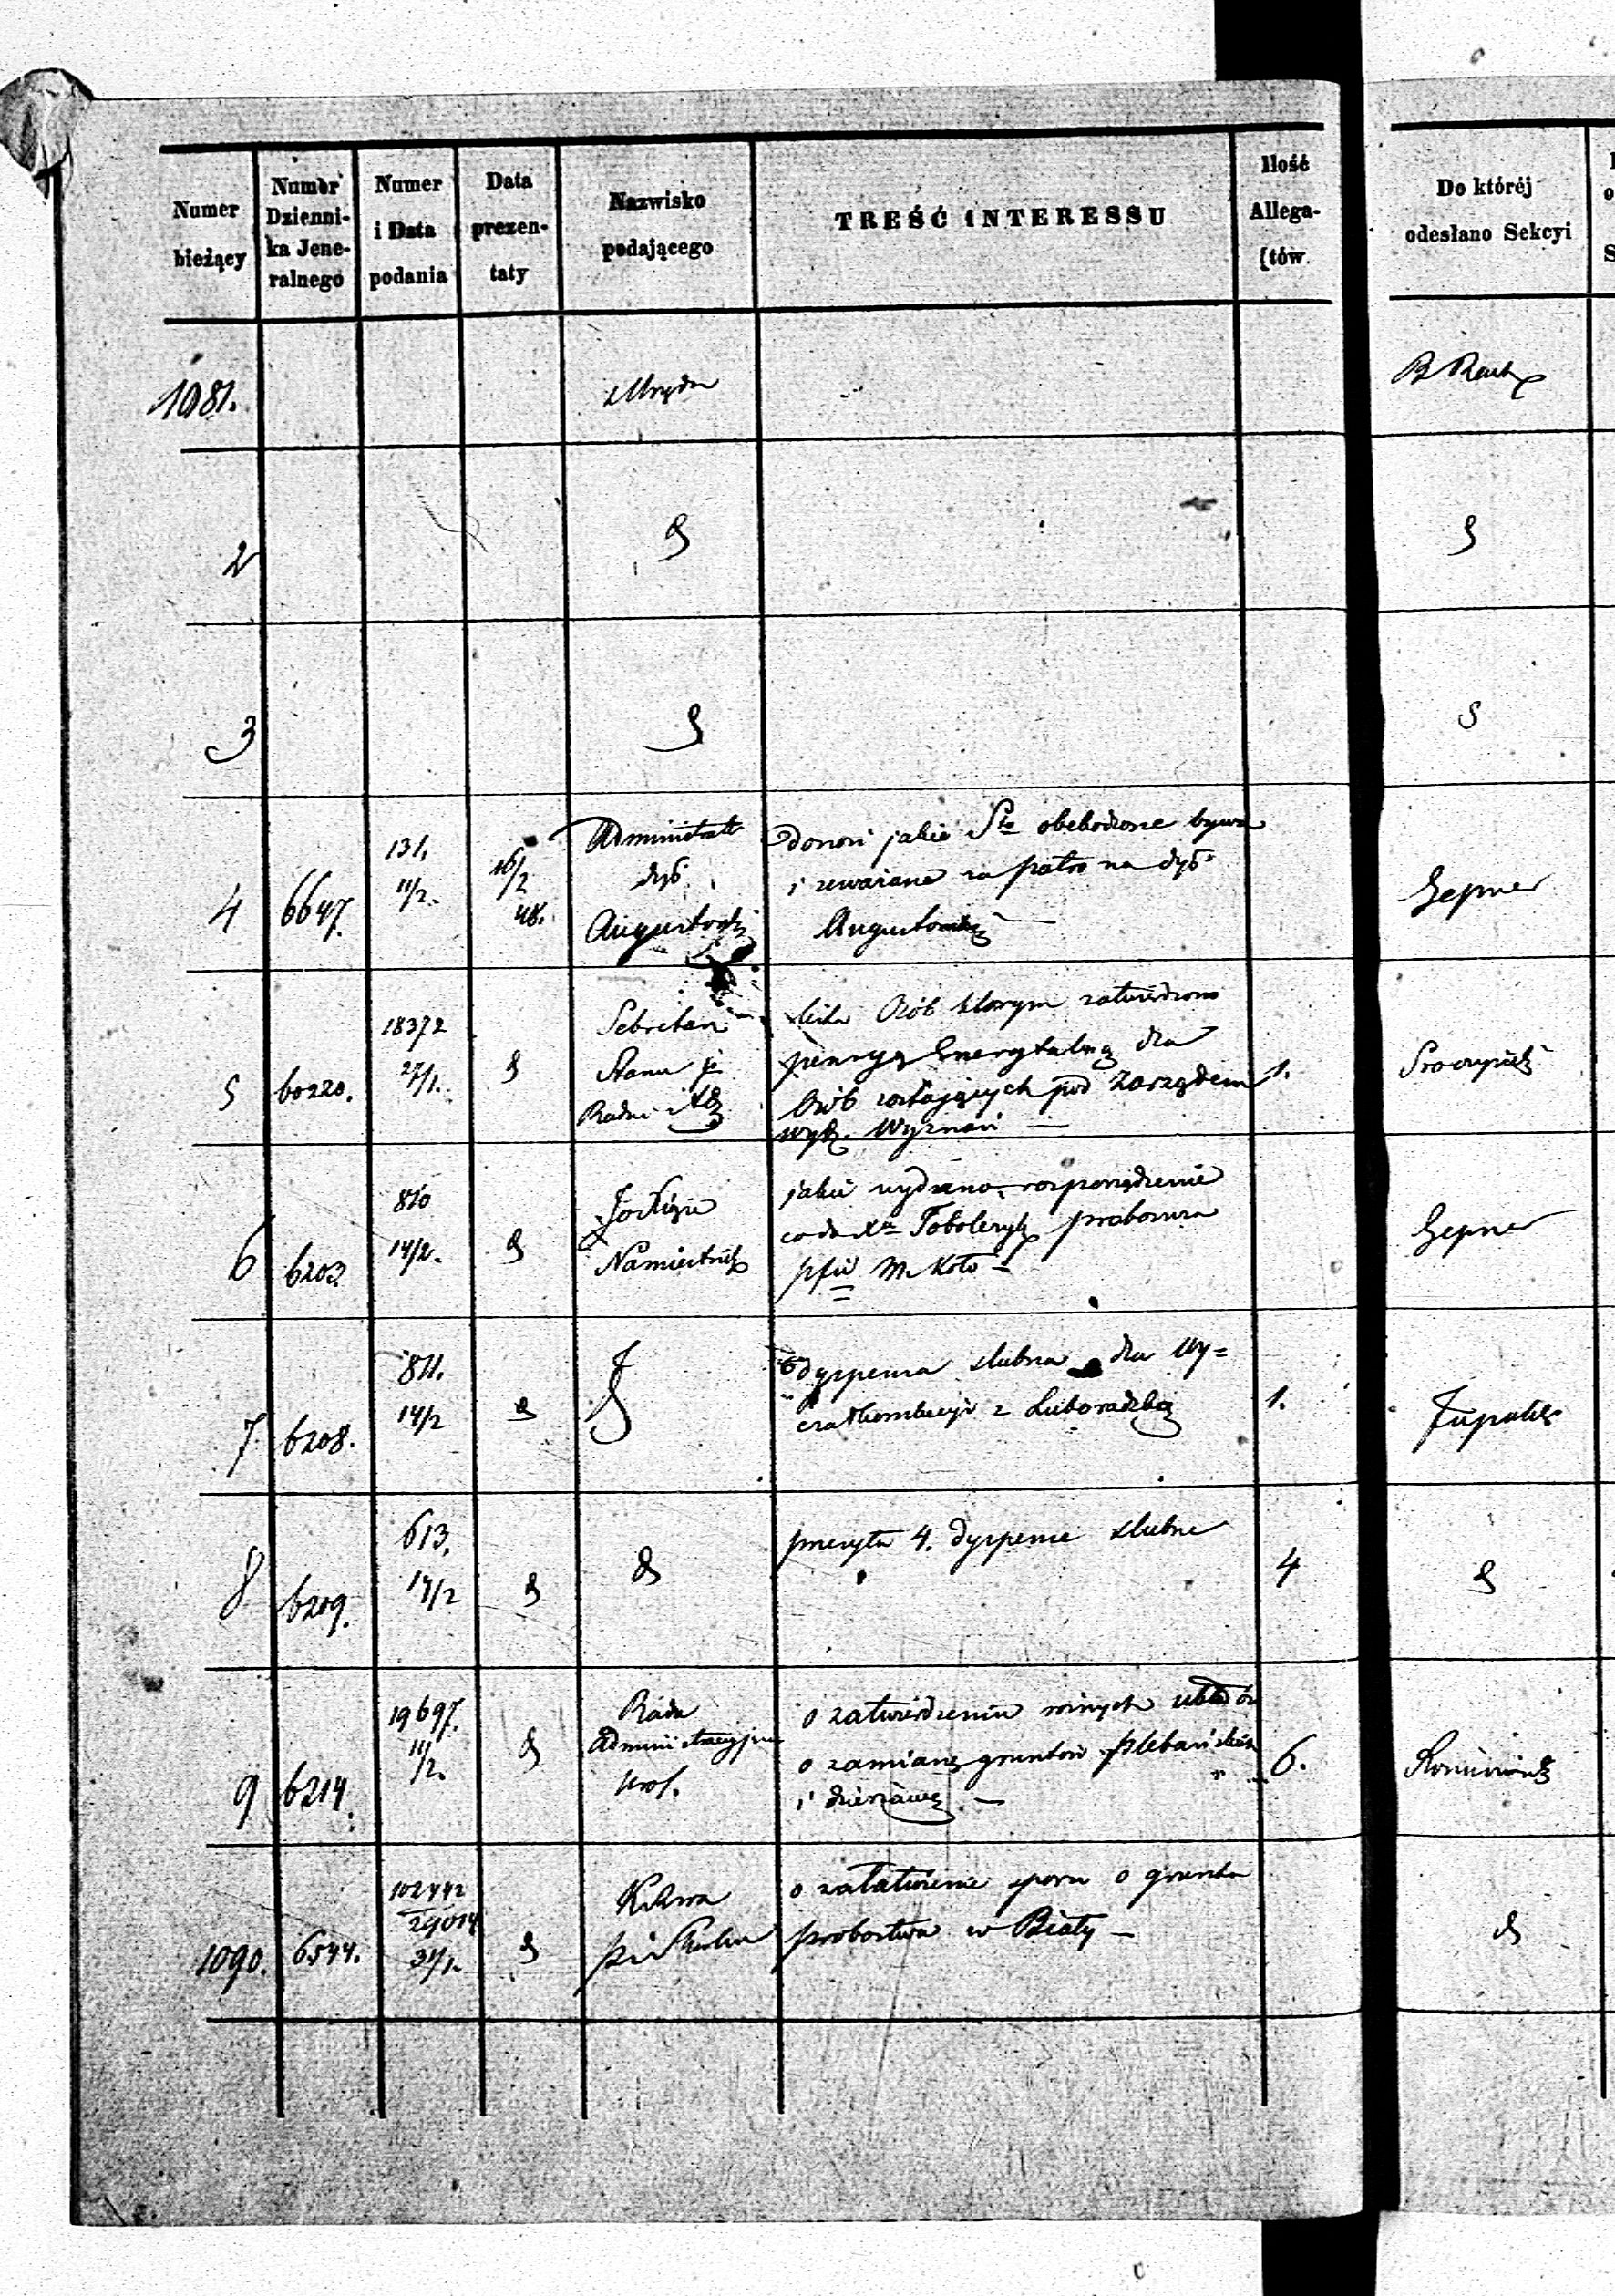 Numer bieżący
Numer Dziennika Jeneralnego
Numer i Data podania
Data prezentaty
Nazwisko podającego
TREŚĆ INTERESSU
Ilość Allegatów
Do któréj odesłano Sekcyi
1081.
z Urzędu
2
3
4
6647.
131.
11/2.
16/2
48.
Administrat
dyó
Augustowsk
donosi jakie Sta obchodzone bywa
i uważane za patro na dyó
Augustowską —
Gepner
5
60220.
18372
27/1.
Sekretarz
Stanu pr
Radzie Ad
lista Osób którym zatwierdzono
pensyą Emerytalną dla
Osób zostających pod Zarządem
wydz. Wyznań —
1.
6
6203.
810
14/2.
JoXięcia
Namiestnik
jakie wydano rozporządzenie
co do Xa proboszcza
pfii M. Koło —
Gepner
7
6208.
811.
14/2
dyspensa ślubna dla Wy=
z Luboradzką
1.
8
6209.
613.
14/2
przesyła 4. dyspense ślubne
4
9
6214.
19697.
11/2.
Rada
Administracyjna
Krol.
o zatwierdzenie różnych układów
o zamianę gruntów plebańskich
i dzierżawę —
6.
1090.
6544.
102442
29014
31/1.
o załatwienie sporu o grunta
probostwa w Biały —